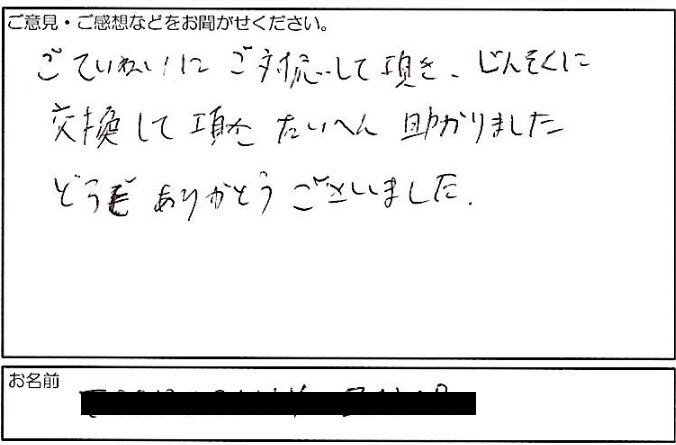 ご意見・ご感想などをお聞がせください。
ごていねいに ご対応して頂き、じんそくに
交換して頂き たいへん 助かりました
どうも ありがとう ございました.
お名前